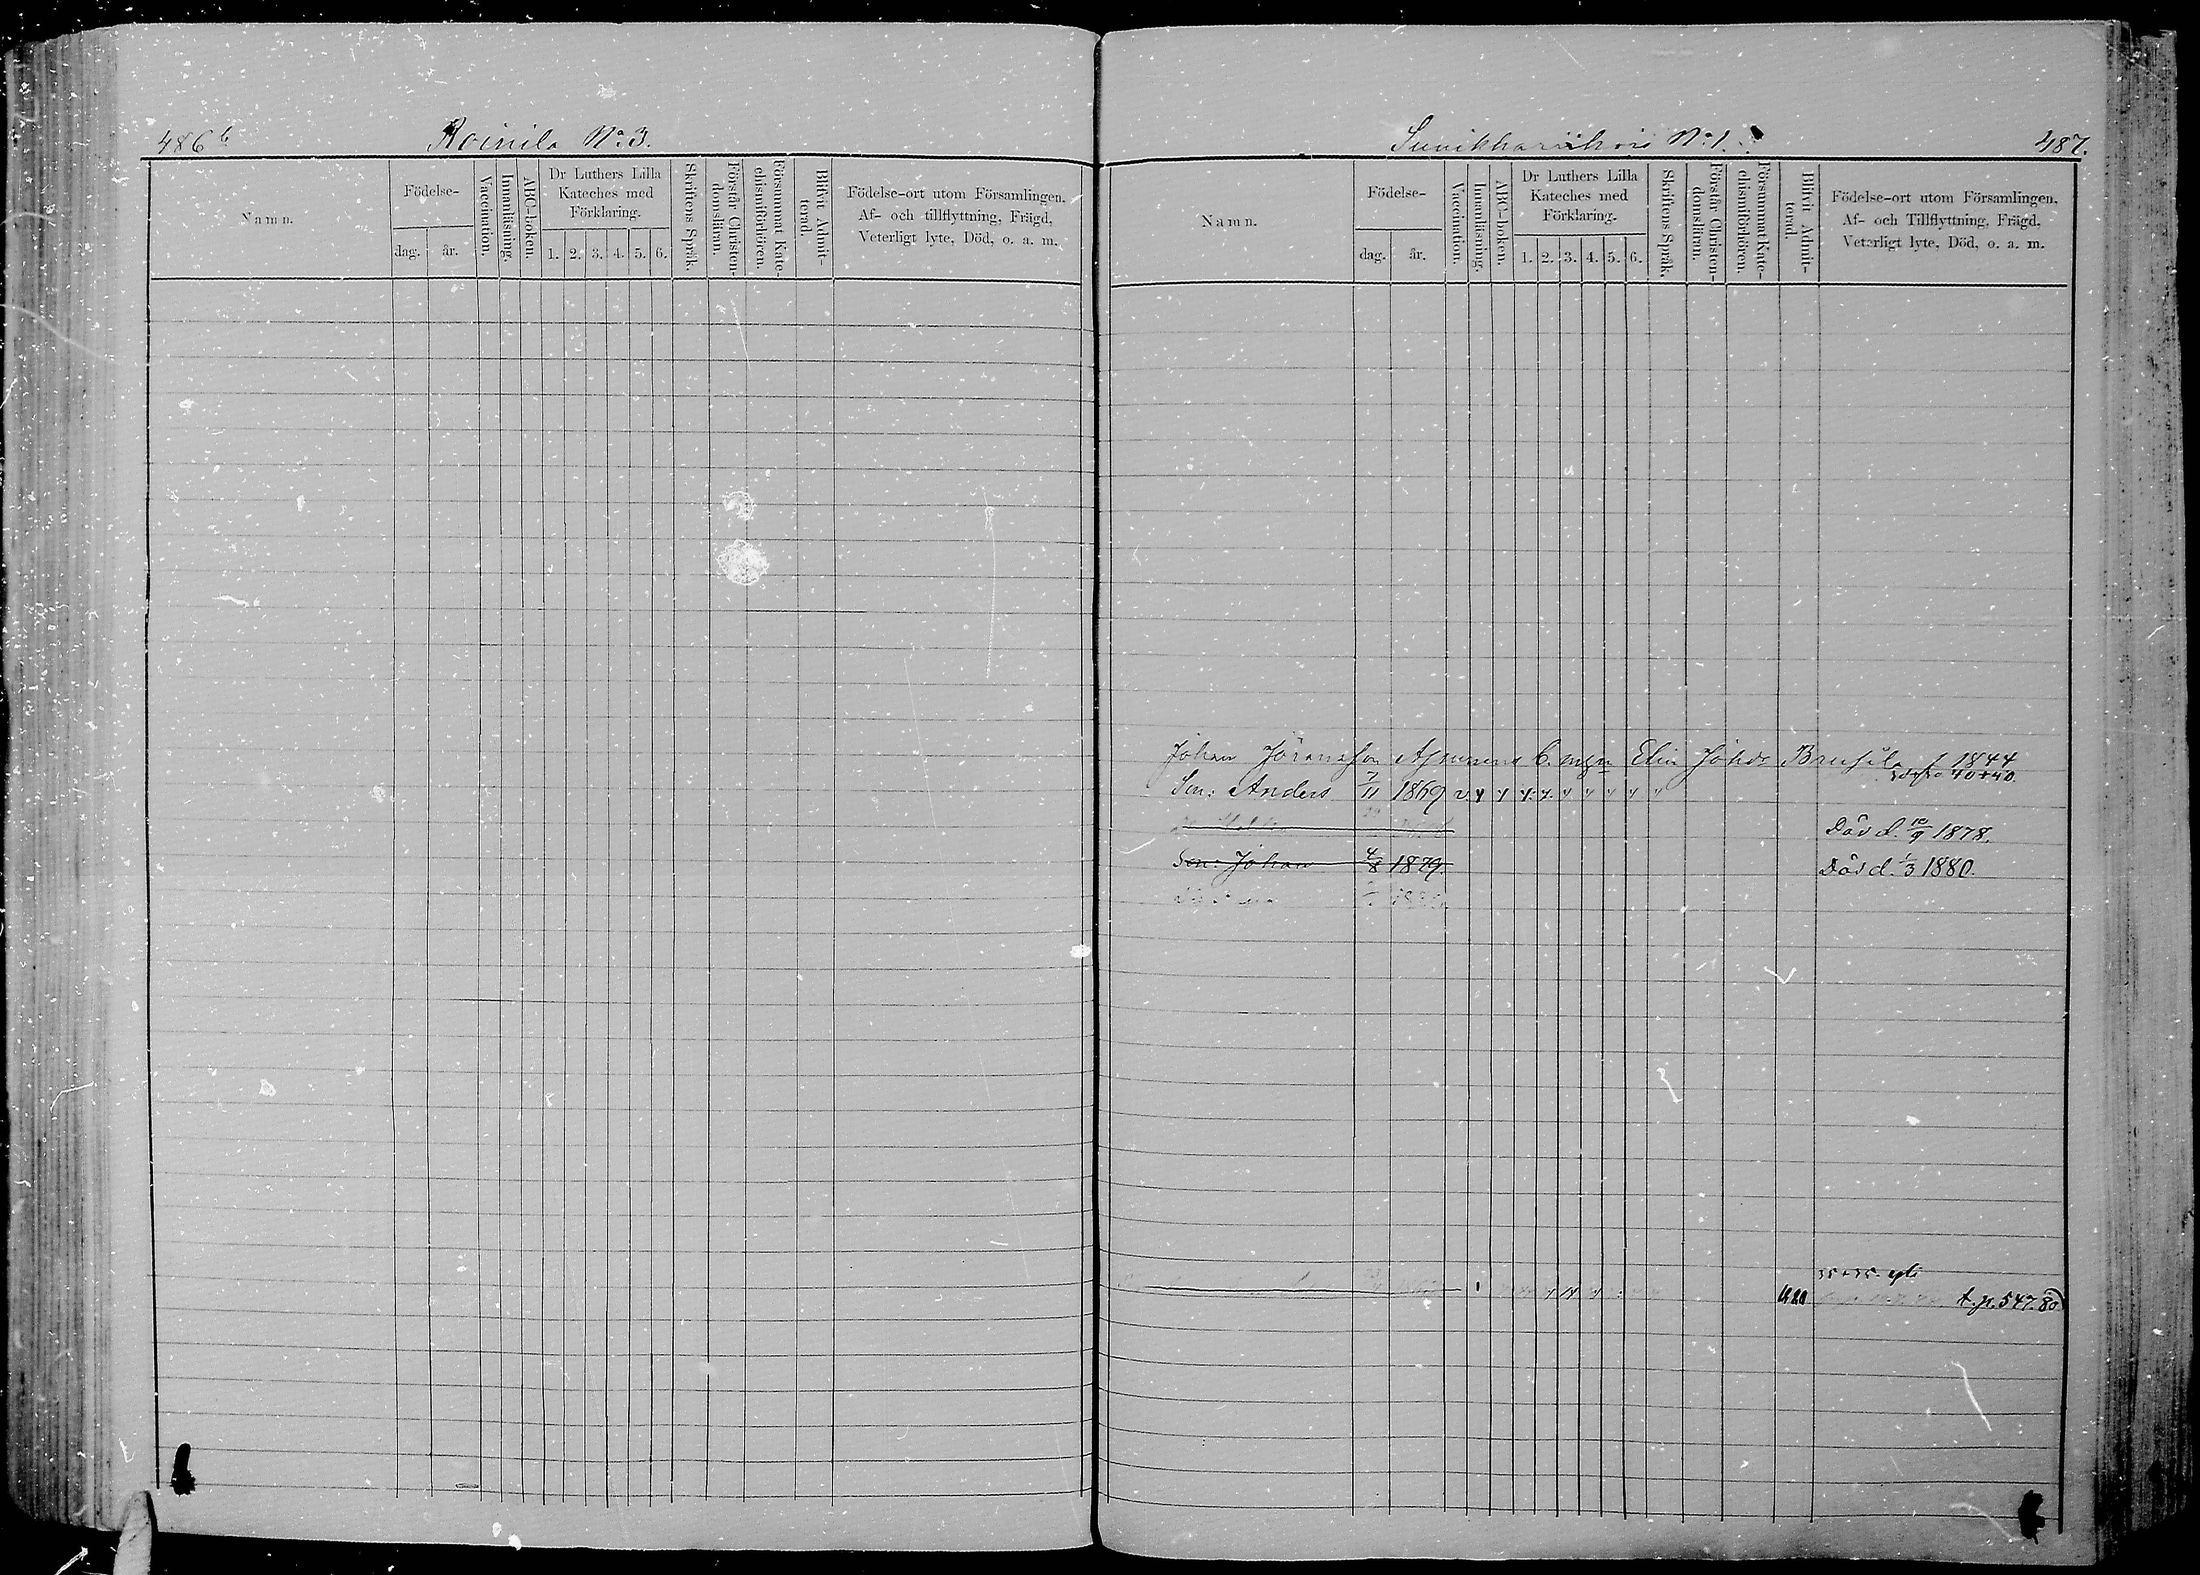 486 b
Roinila No 3.
Namn.
Födelse-
dag.
år.
Vaccination.
Innanläsning.
ABC-boken
Dr Luthers Lilla
Kateches med
Förklaring.
1. 2. 3. 4. 5. 6.
Skriftens Språk.
Förstår Christen-
domsläran.
Försummat Kate-
chismiförhören.
Blifvit Admit-
terad.
Födelse-ort utom Församlingen.
Af- och tillflyttning, Frägd,
Veterligt lyte, Död, o. a. m.
No 1.
487.
Namn.
Födelse-
dag.
år.
Vaccination.
Innanläsning.
ABC-boken.
Dr Luthers Lilla
Kateches med
Förklaring.
1. 2. 3. 4. 5. 6.
Skriftens Språk.
Förstår Christen-
domsläran.
Försummat Kate-
chismförhören.
Blifvit Admit-
terad.
Födelse-ort utom Församlingen.
Af- och Tillflyttning, Frägd,
Veterligt lyte, Död, o. a. m.
Johan Göransson Elin Johsdr f. 1844
40+40
Son: Anders 7/11 1869
Död d. 10/9 1878.
Son: Johan 4/8 1879. Död d. 1/3 1880.
t. p. 547. 80